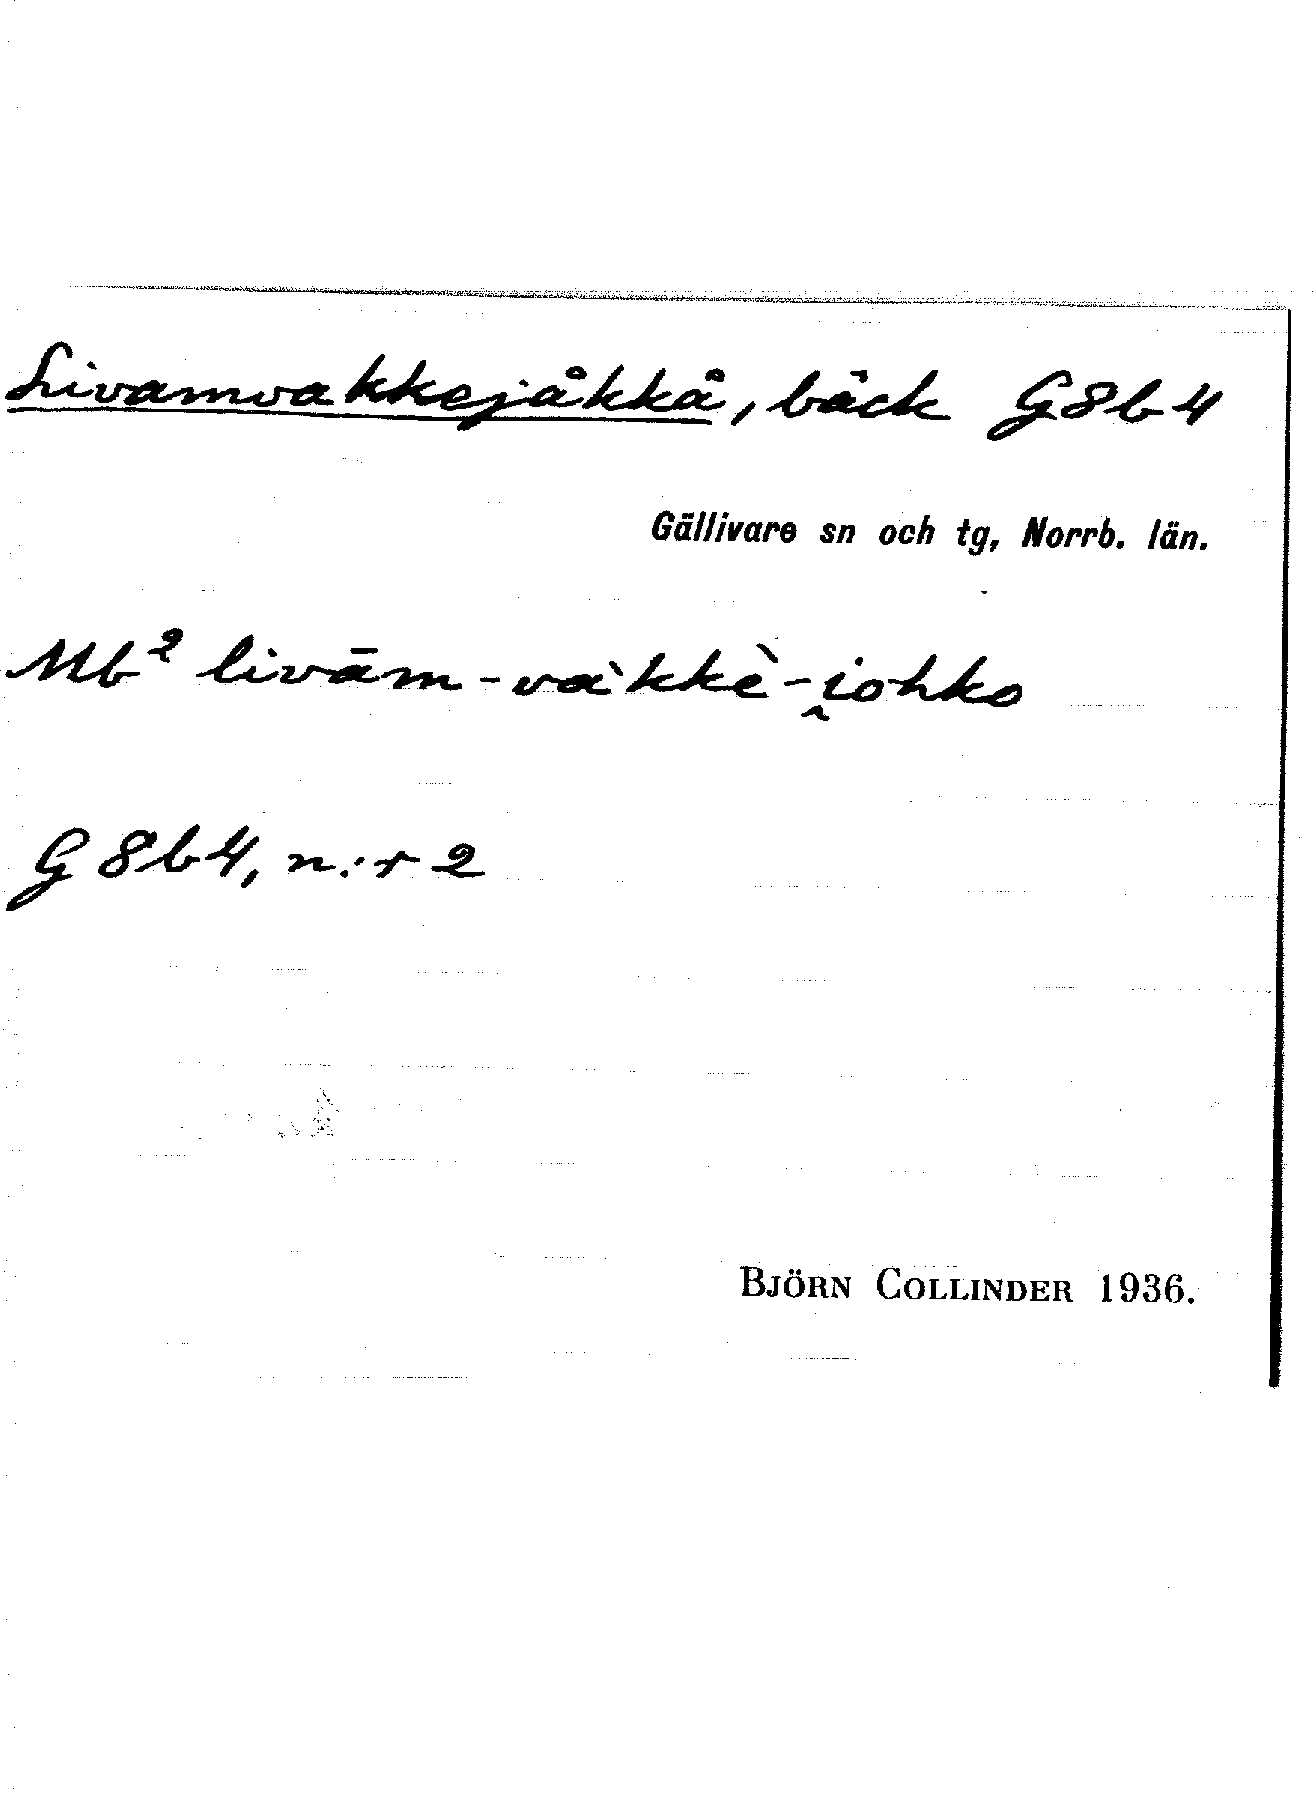 Livamvakkejåkkå, bäck G8b4
Gällivare sn och tg, Norrb. län.
Mb² livām-vaˋkkè-i̯ohko
G8b4, n:r 2
BJÖRN COLLINDER 1936.